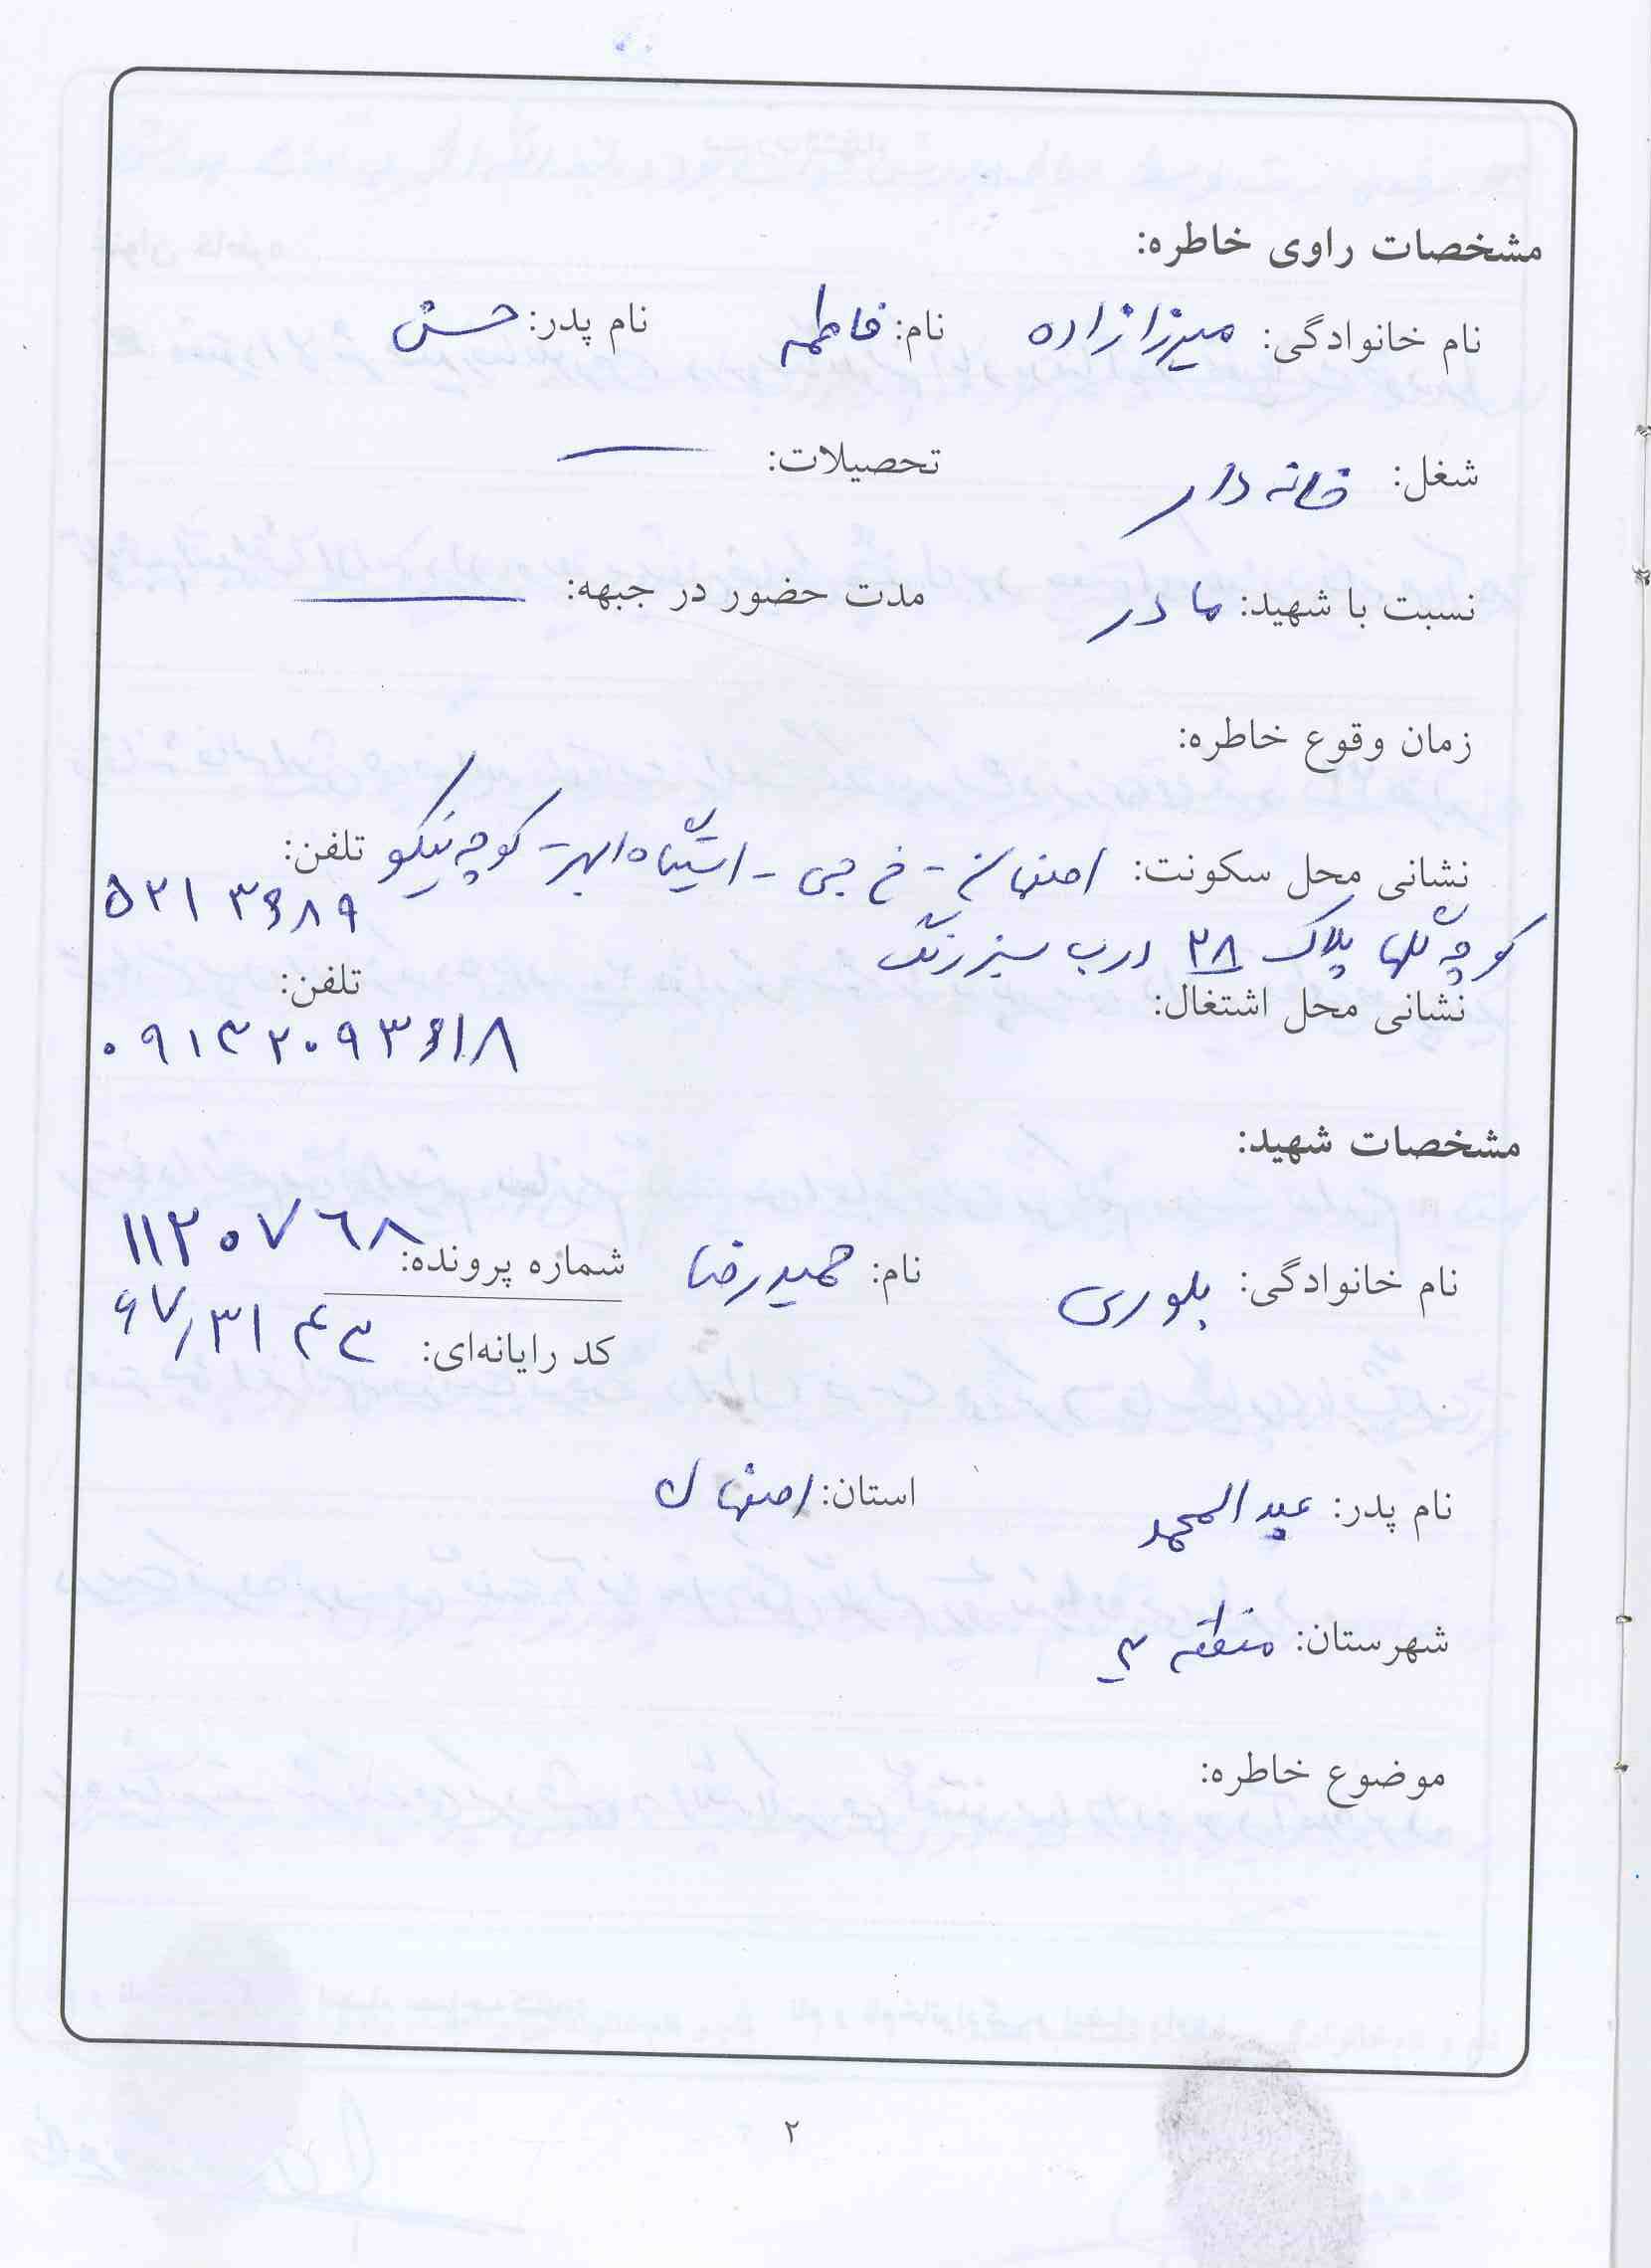 مشخصات راوی خاطره:
نام خانوادگی: میرزازاده نام: فاطمه نام پدر: حسن
شغل: خانه دار تحصیلات: —
نسبت با شهید: مادر مدت حضور در جبهه: —
زمان وقوع خاطره:
نشانی محل سکونت: اصفهان - خ جی - ایستگاه ابهر - کوچه نیکو تلفن:
۵۲۱۳۶۸۹
کوچه گلها پلاک ۲۸ درب سبز رنگ
نشانی محل اشتغال: تلفن:
۰۹۱۳۲۰۹۳۶۱۸
مشخصات شهید:
نام خانوادگی: بلوری نام: حمیدرضا شماره پرونده: ۱۱۲۰۷۶۸
کد رایانه‌ای: ۶۷/۳۱۴۳
نام پدر: عبدالمحمد استان: اصفهان
شهرستان: منطقه ۳
موضوع خاطره:
۲